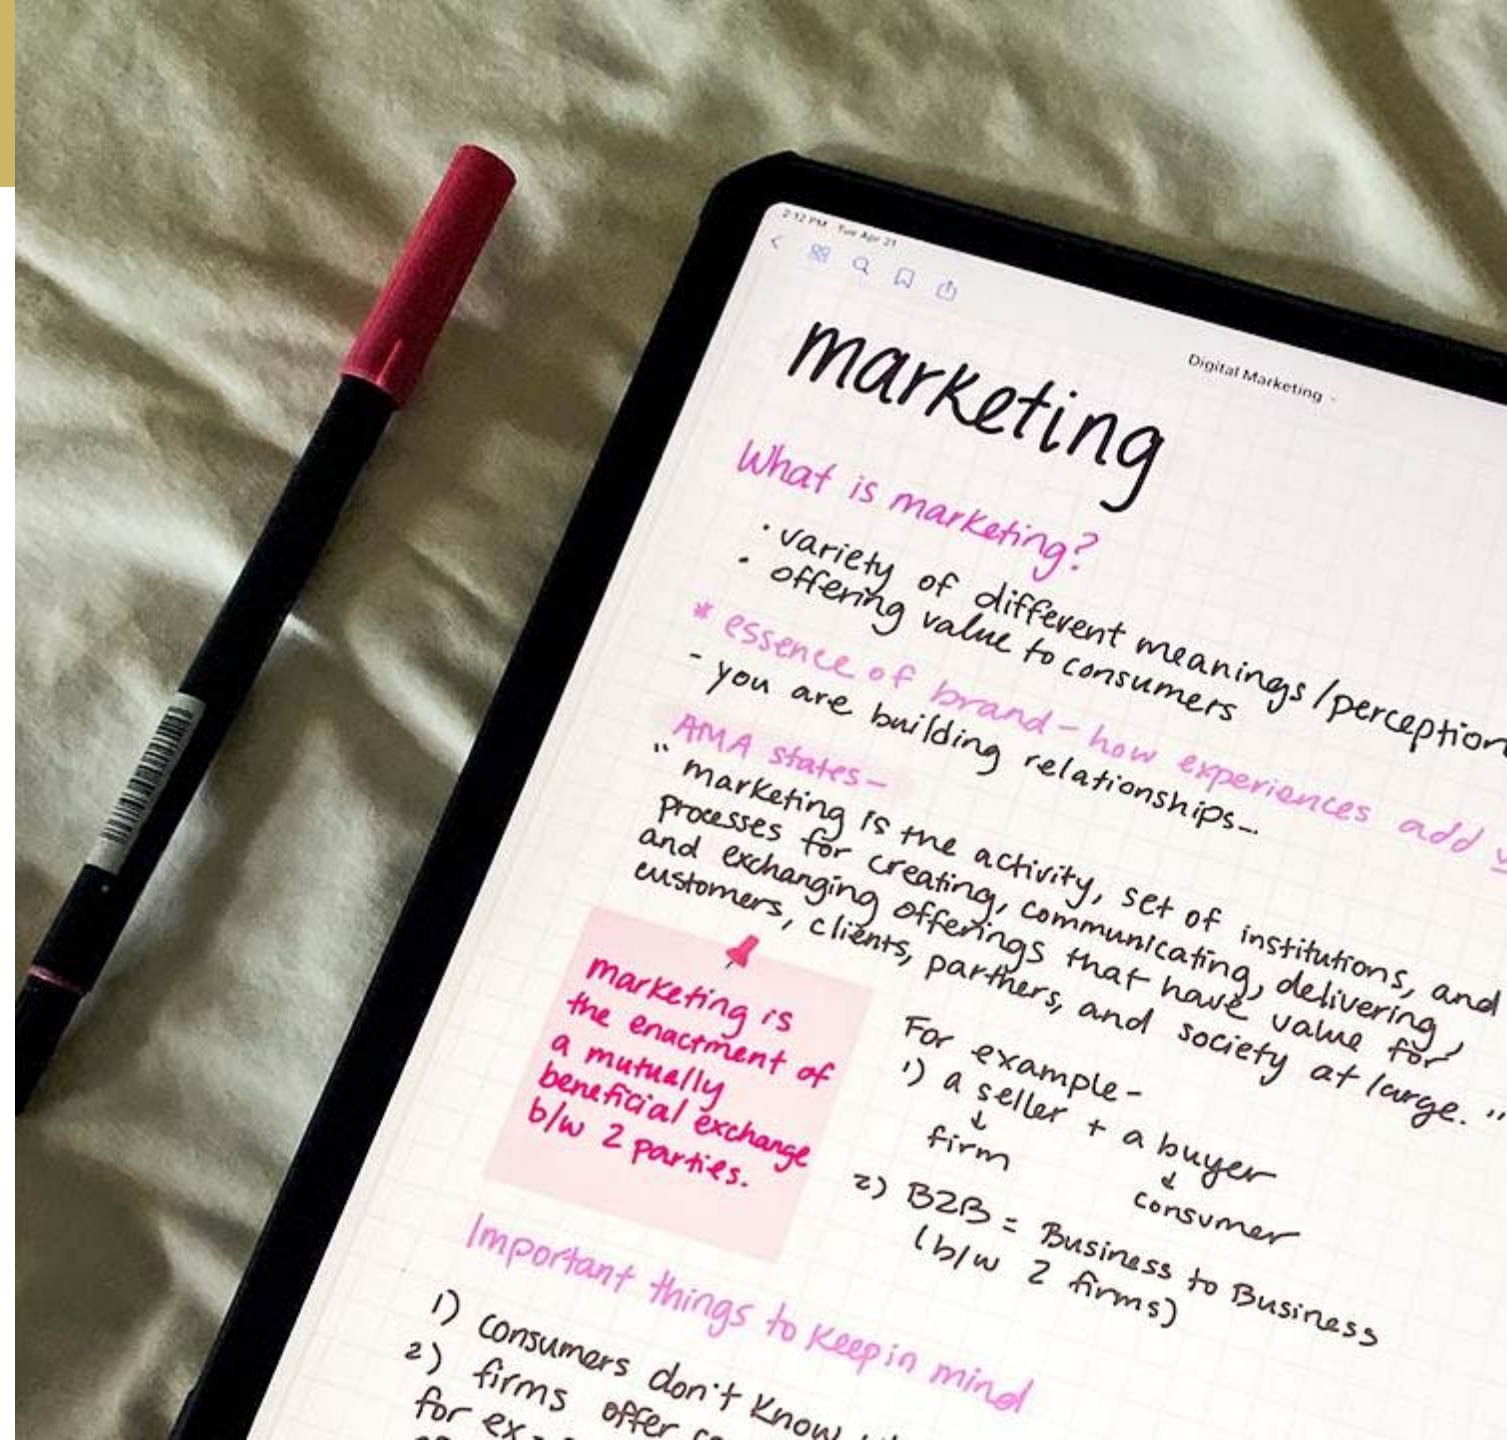 2:12 PM Tue Apr 21
Digital Marketing
marketing
What is marketing?
• variety of different meanings/perception
• offering value to consumers
* essence of brand - how experiences add
- you are building relationships...
AMA states-
"marketing is the activity, set of institutions, and
processes for creating, communicating, delivering,
and exchanging offerings that have value for
customers, clients, partners, and society at large."
marketing is
the enactment of
a mutually
beneficial exchange
b/w 2 parties.
For example-
1) a seller + a buyer
↓ ↓
firm consumer
2) B2B = Business to Business
(b/w 2 firms)
Important things to keep in mind
1) consumers don't know
2) firms offer
for ex-